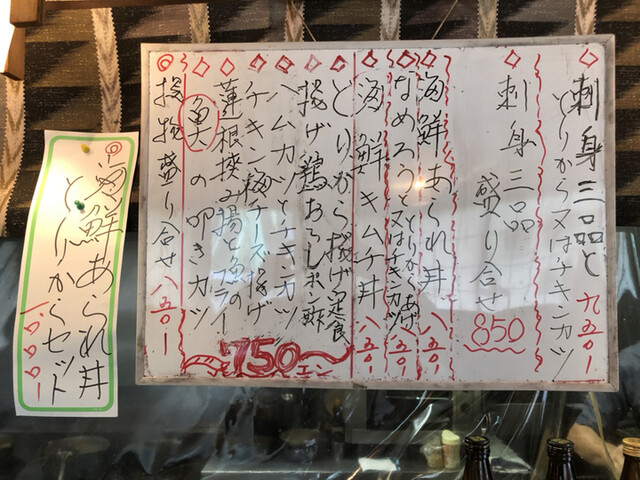 ◇刺身三品と
とりから又はチキンカツ 九五〇ー
◇刺身三品
盛り合せ 850
◇海鮮あられ丼 八五〇ー
◇なめろうと とりからあげ
又はチキンカツ 八五〇ー
◇海鮮キムチ丼 八五〇ー
◇とりから揚げ定食
◇揚げ鶏おろしポン酢
◇ハムカツとチキンカツ
◇チキン梅チーズ揚げ
◇蓮根挟み揚と魚のフライ
◇魚の叩きカツ
750エン
◎揚物盛り合せ 八五〇ー
◎海鮮あられ丼
とりからセット